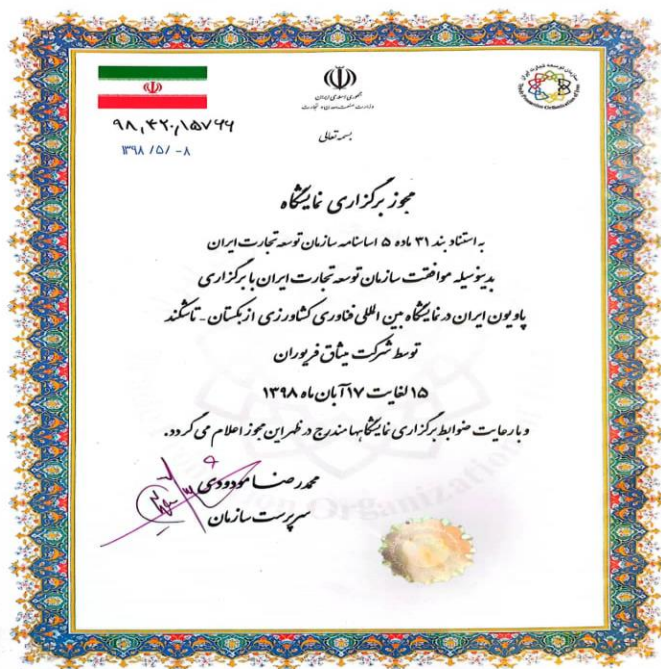 جمهوری اسلامی ایران
وزارت صنعت، معدن و تجارت
سازمان توسعه تجارت ایران
Trade Promotion Organization of Iran
۹۸,۴۲۰,۱۵۷۶۶
۱۳۹۸ /۵/ -۸
بسمه تعالی
مجوز برگزاری نمایشگاه
به استناد بند ۳۱ ماده ۵ اساسنامه سازمان توسعه تجارت ایران
بدینوسیله موافقت سازمان توسعه تجارت ایران با برگزاری
پاویون ایران در نمایشگاه بین المللی فناوری کشاورزی ازبکستان - تاشکند
توسط شرکت میثاق فرپوران
۱۵ لغایت ۱۷ آبان ماه ۱۳۹۸
و با رعایت ضوابط برگزاری نمایشگاهها مندرج در ظهر این مجوز اعلام می گردد.
محمدرضا مودودی
سرپرست سازمان